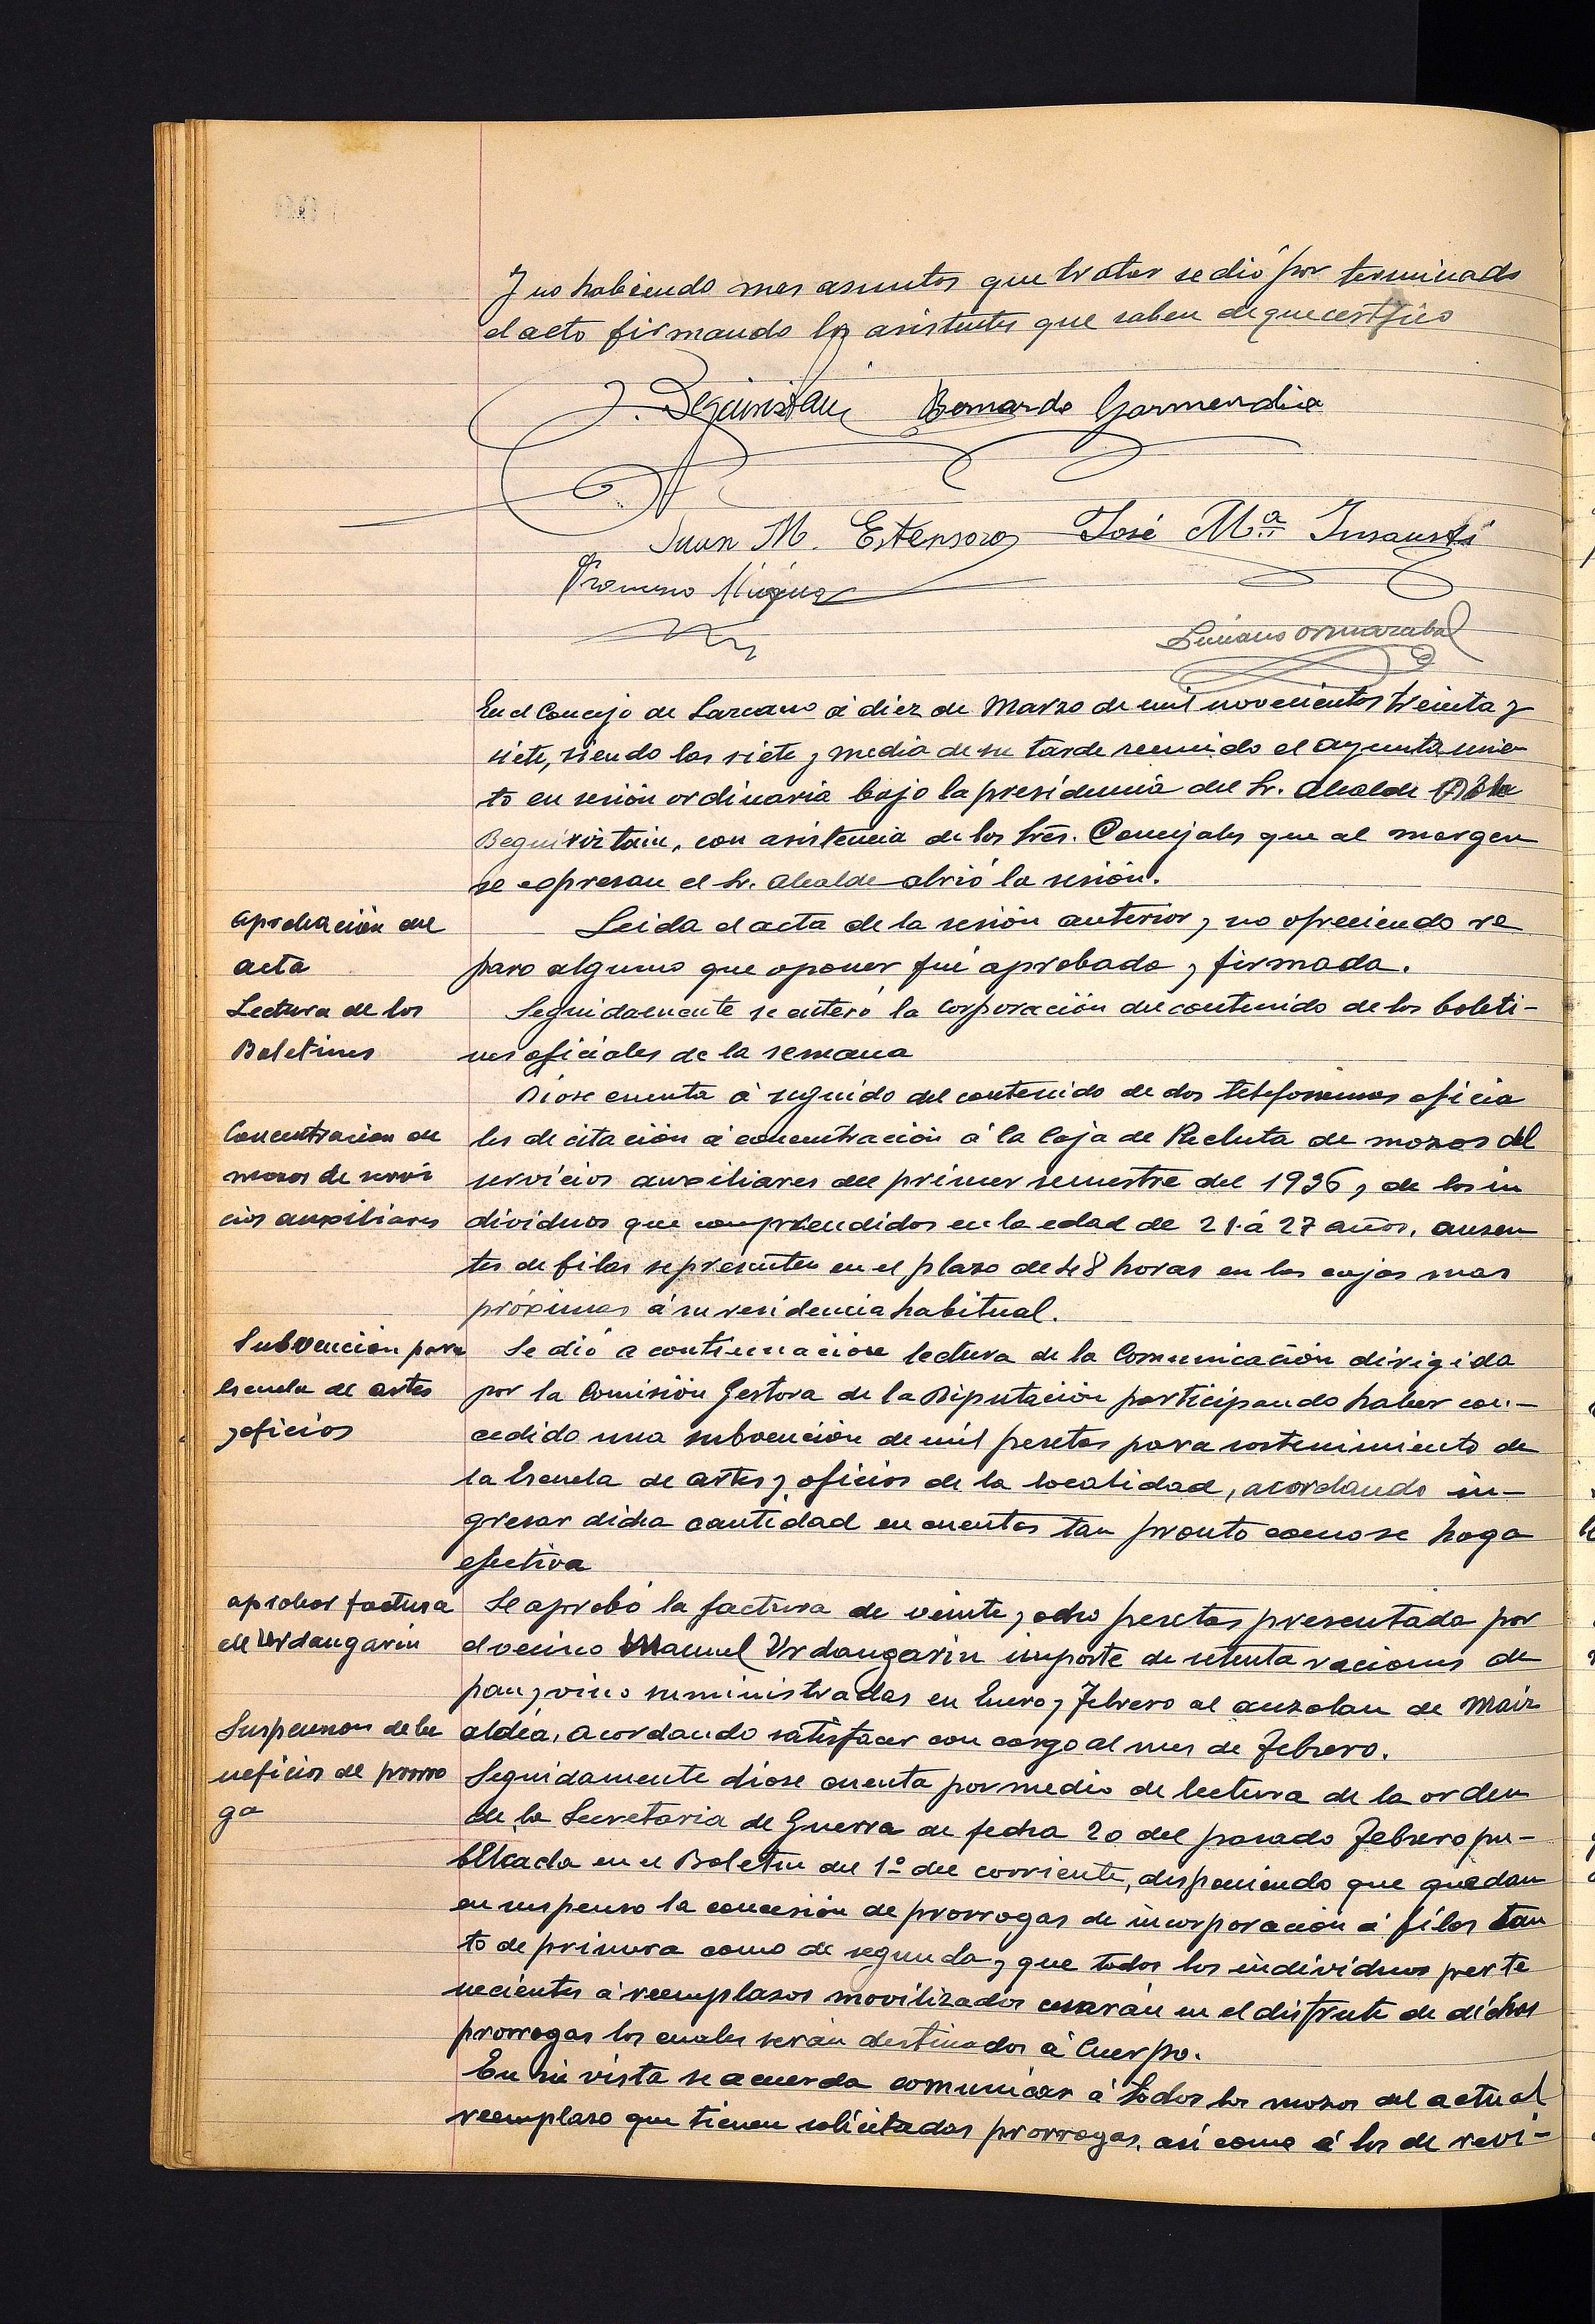 Y no habiendo mas asuntos que tratar se dió por terminado
el acto firmando los asistentes que saben de que certifico
J. Beguiristain Bernardo Garmendia
Juan M. Estensoro José Mª Insausti
Múgica
Luciano Ormazabal
En el Concejo de Lazcano á diez de Marzo de mil novecientos treinta y
siete, siendo las siete y media de su tarde reunido el ayuntamien
to en sesión ordinaria bajo la presidencia del Sr. Alcalde
Beguiristain, con asistencia de los Sres. Concejales que al margen
se expresan el Sr. Alcalde abrió la sesión.
Aprobación del
acta
Leida el acta de la sesión anterior y no ofreciendo re
paro alguno que oponer fué aprobada y firmada.
Lectura de los
Boletines
Seguidamente se enteró la Corporación del contenido de los boleti-
nes oficiales de la semana
Concentracion de
mozos de servi
cios auxiliares
Diose cuenta á seguido del contenido de dos telefonemas oficia
les de citación á concentración á la Caja de Recluta de mozos del
servicios auxiliares del primer semestre del 1936 y de los in
dividuos que comprendidos en la edad de 21 á 27 años, ausen
tes de filas se presenten en el plazo de 48 horas en las cajas mas
próximas á su residencia habitual.
Subvención para
Escuela de artes
y oficios
Se dió a continuación lectura de la Comunicación dirigida
por la Comisión Gestora de la Diputación participando haber con-
cedido una subvención de mil pesetas para sostenimiento de
la Escuela de artes y oficios de la localidad, acordando in-
gresar dicha cantidad en cuentas tan pronto como se haga
efectiva
aprobar factura
de Urdangarin
Se aprobó la factura de veinte y ocho pesetas presentada por
el vecino Manuel Urdangarin importe de setenta raciones de
pan y vino suministradas en Enero y Febrero al auzolan de Maiz
aldea, acordando satisfacer con cargo al mes de Febrero.
Suspension de be
neficios de prorro
ga
Seguidamente diose cuenta por medio de lectura de la orden
de la Secretaria de Guerra de fecha 20 del pasado Febrero pu-
blicada en el Boletin del 1º del corriente, disponiendo que quedan
en suspenso la concesión de prorrogas de incorporación á filas tan
to de primera como de segunda y que todos los individuos perte
necientes á reemplazos movilizados cesarán en el disfrute de dichas
prorrogas los cuales serán destinados á Cuerpo.
En su vista se acuerda comunicar á todos los mozos del actual
reemplazo que tienen solicitadas prorrogas, así como á los de revi-